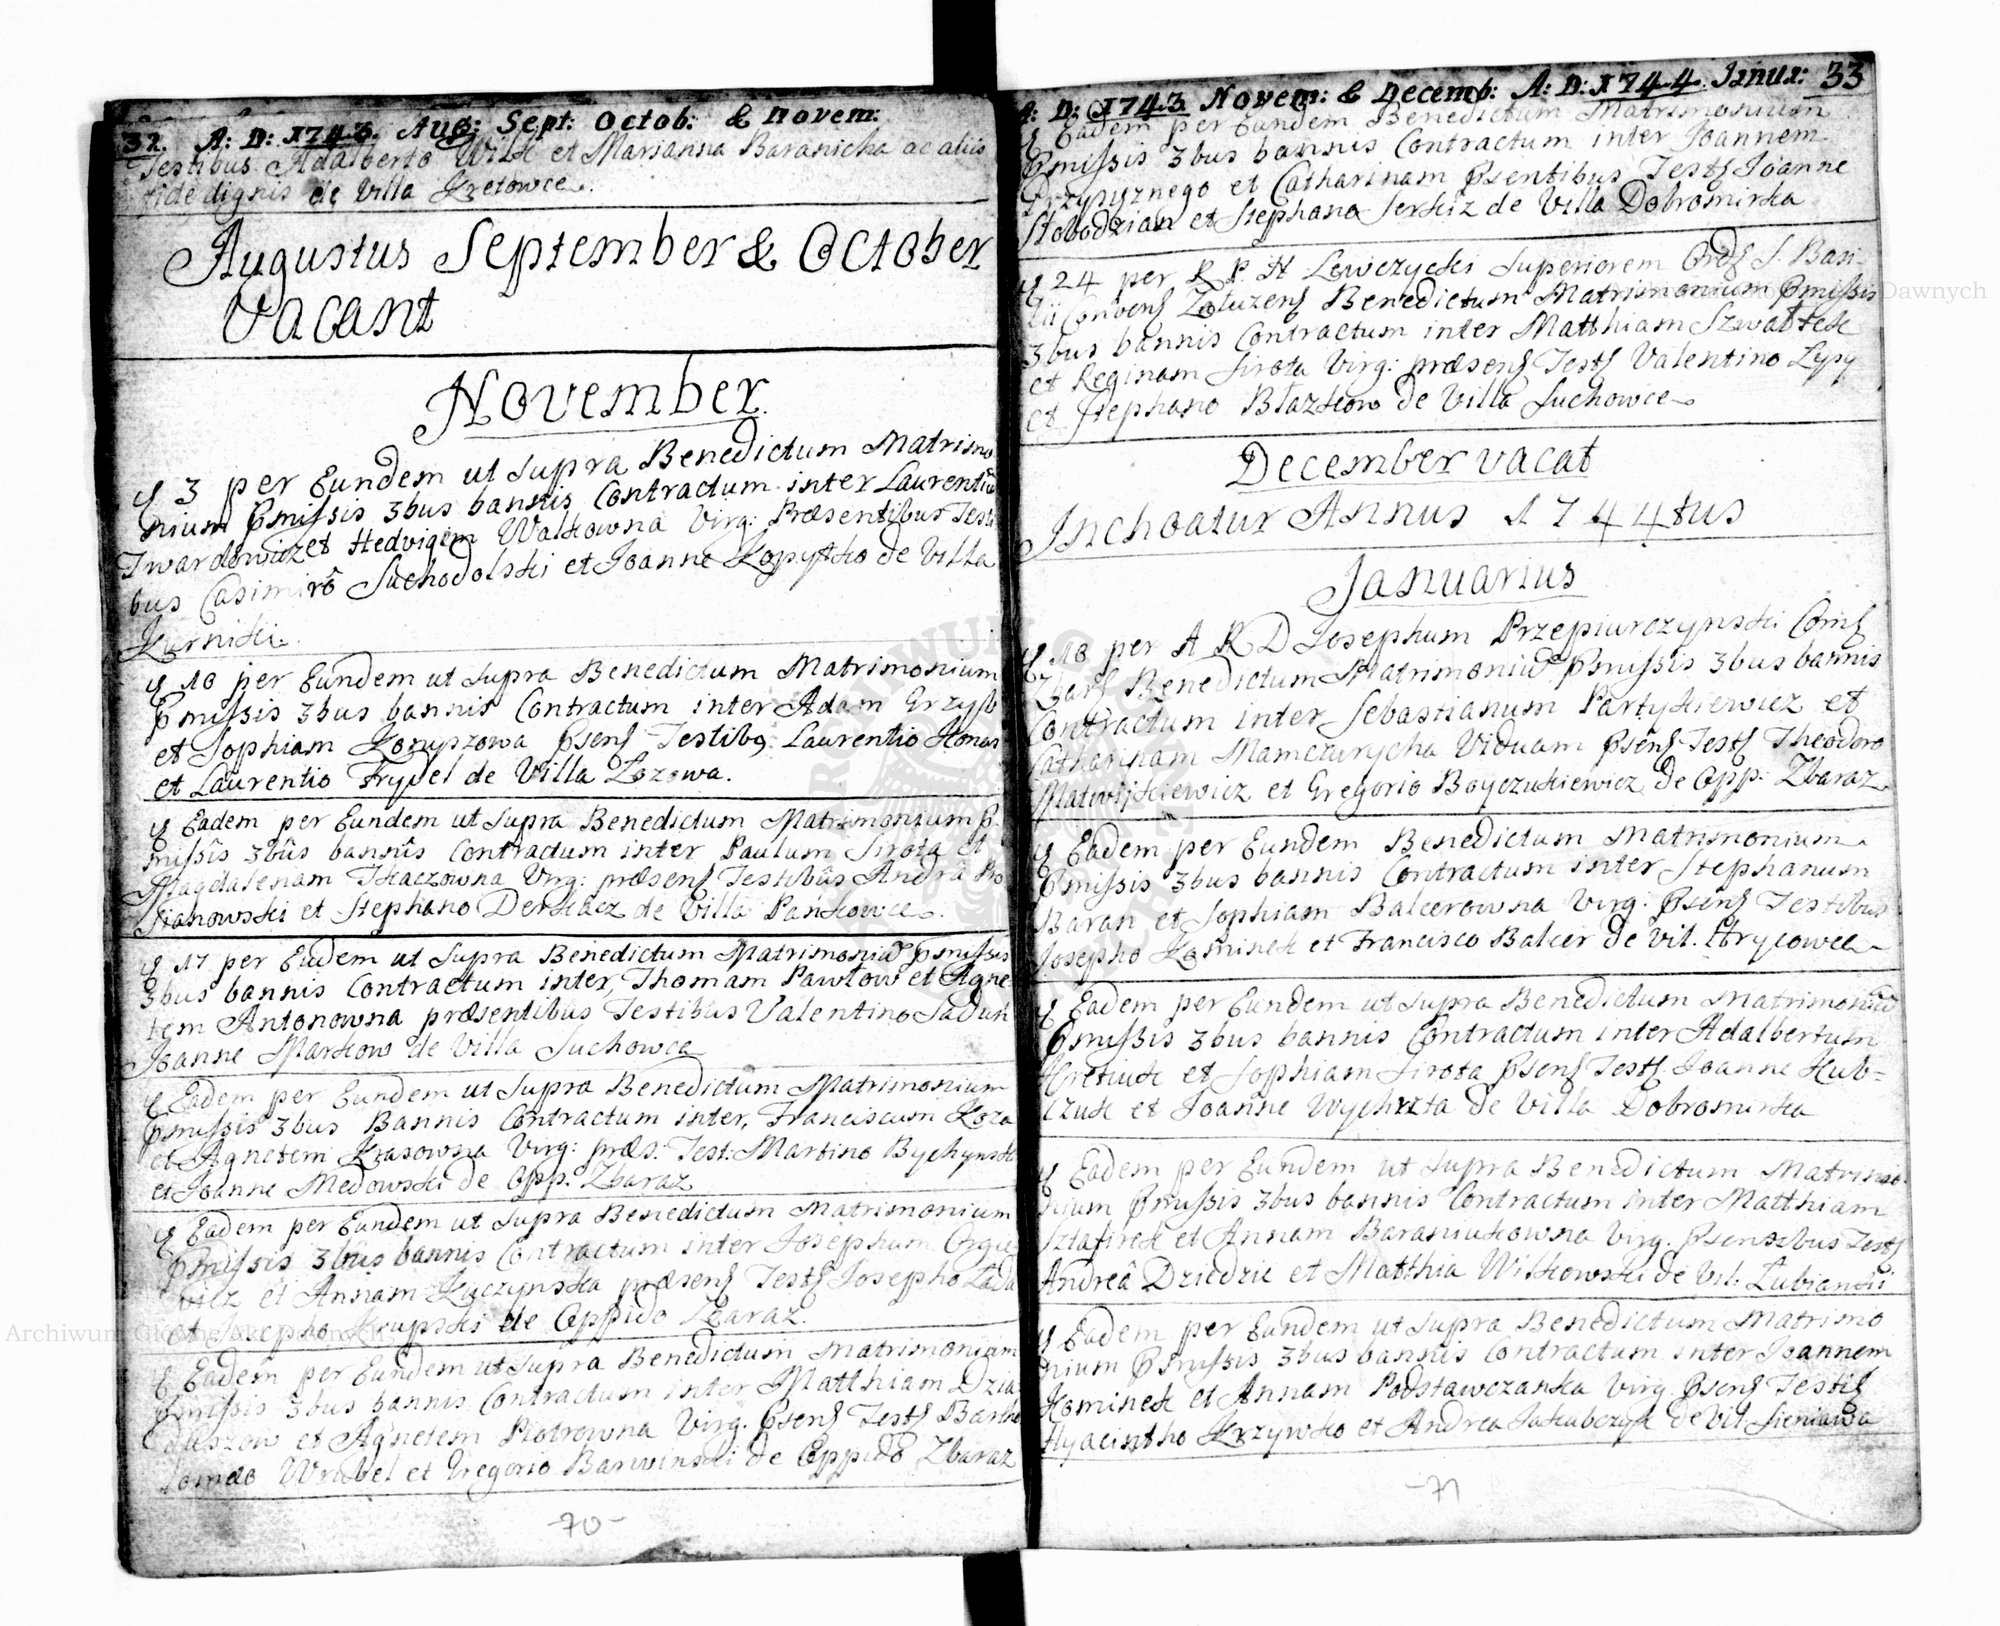 32. A: D: 1743. Aug: Sept: Octob: & Novem:
Testibus Adalberto Wilk et Marianna Baranicha ac aliis
fide dignis de Villa Kretowce.
Augustus September & October
Vacant
November
3 per Eundem ut Supra Benedictum Matrimo
nium Pmissis 3bus bannis Contractum inter Laurentiũ
Twardowicz et Hedvigem Walkowna Virg: Præsentibus Testi
bus Casimirô Suchodolski et Joanne Kopytko de Villa
Karniki.
10 per Eundem ut Supra Benedictum Matrimonium
Pmissis 3bus bannis Contractum inter Adam Grzyb
et Sophiam Koruszowa Psens Testibq Laurentio Konas
et Laurentio Frydel de Villa Lozowa.
Eadem per Eundem ut Supra Benedictum Matrimonium P
missis 3bus bannis Contractum inter Paulum Sirota et
Magdalenam Tkaczowna Virg: præsens Testibus Andrâ Pro
Stephano Derkacz de Villa Pańkowce.
17 per Eundem ut Supra Benedictum Matrimoniũ Pmissis
3bus bannis Contractum inter, Thomam Pawłow et Agne
tem Antonowna præsentibus Testibus Valentino Sadun
Joanne Markow de Villa Suchowce
Eadem per Eundem ut Supra Benedictum Matrimonium
Pmissis 3bus Bannis Contractum inter, Franciscum Koza
et Agnetem Krasowna Virg: præs: Test: Martino Bychynski
et Joanne Medowski de Opp: Zbaraz
Eadem per Eundem ut Supra Benedictum Matrimonium
Pmissis 3bus bannis Contractum inter Josephum Orgie
wicz et Annam Kyczynska præsens Tests Josepho Lada
et Josepho Krupski de Oppido Zbaraz.
Eadem per Eundem ut Supra Benedictum Matrimonium
Pmissis 3bus bannis Contractum inter Matthiam Dzia
duszow et Agnetem Piotrowna Virg. Psens Tests Bartho
lomæo Wrubel et Gregorio Barwinski de Oppido Zbaraz
-70-
A: D: 1743 Novem: & Decemb: A: D: 1744. Janua: 33
Eadem per Eundem Benedictum Matrimonium
Pmissis 3bus bannis Contractum inter Joannem
Przysyznego et Catharinam Psentibus Tests Joanne
Słobodzian et Stephano Serkiz de Villa Dobromirka
24 per R P H Lewczycki Superiorem Ords S. Basi-
lii Convens Załuzens Benedictum Matrimonium Pmissis
3bus bannis Contractum inter Matthiam Szwałek
et Reginam Sirota Virg: præsens Tests Valentino Lysy
et Stephano Błazkow de Villa Suchowce
December vacat
Inchoatur Annus 1744tus
Januarius
10 per A R D Josephum Przepiurczynski Coms
Zbars Benedictum Matrimoniũ Pmissis 3bus bannis
Contractum inter Sebastianum Partykiewicz et
Catharinam Mamczurycha Viduam Psens Tests Theodoro
Matwijkiewicz et Gregorio Boyczukiewicz de Opp: Zbaraz
Eadem per Eundem Benedictum Matrimonium
Pmissis 3bus bannis Contractum inter Stephanum
Baran et Sophiam Balcerowna Virg: Psens Testibus
Josepho Kominek et Francisco Balcer de Vil. Hrycowce
Eadem per Eundem ut Supra Benedictum Matrimoniũ
Pmissis 3bus bannis Contractum inter Adalbertum
Hretiuk et Sophiam Sirota Psens Tests Joanne Hub=
czuk et Joanne Wychrzta de Villa Dobromirka
Eadem per Eundem ut Supra Benedictum Matrimo
nium Pmissis 3bus bannis Contractum inter Matthiam
Sztafirek et Annam Baraniukowna Virg. Psentibus Tests
Andreâ Dziedzic et Matthia Witkowski de Vil: Lubianki
Eadem per Eundem ut Supra Benedictum Matrimo
nium Pmissis 3bus bannis Contractum inter Joannem
Kominek et Annam Podstawczanka Virg Psens Testis
Hyacintho Krzywko et Andrea Jakubczyk de Vil Sieniawa
-71